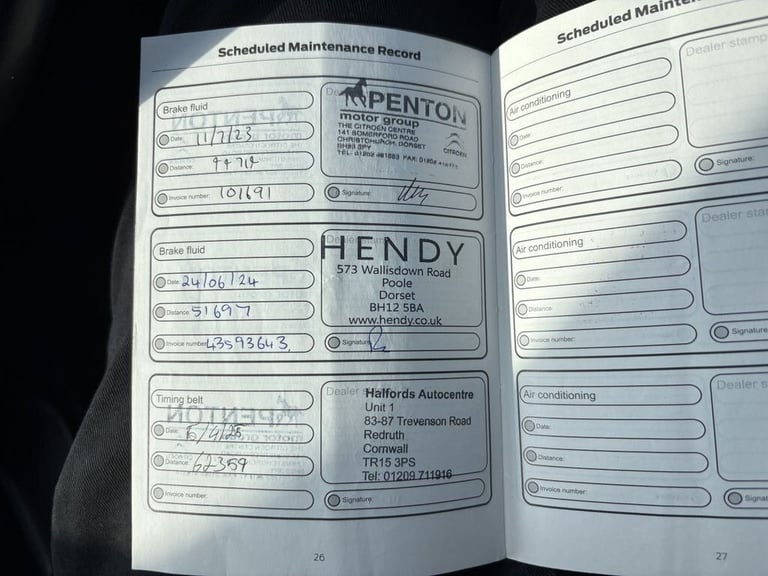 Scheduled Maintenance Record
Brake fluid
Date: 11/7/23
Distance:
Invoice number: 101691
PENTON
motor group
THE CITROEN CENTRE
141 SOMERFORD ROAD
CHRISTCHURCH, DORSET
BH23 3PY
CITROEN
Signature:
Brake fluid
Date: 24/06/24
Distance: 51697
Invoice number: 43593643
HENDY
573 Wallisdown Road
Poole
Dorset
BH12 5BA
www.hendy.co.uk
Signature:
Timing belt
Date: 5/4/25
Distance: 62359
Invoice number:
Dealer
Halfords Autocentre
Unit 1
83-87 Trevenson Road
Redruth
Cornwall
TR15 3PS
Tel: 01209 711916
Signature:
26
Scheduled
Air conditioning
Date:
Distance:
Invoice number:
Dealer stamp
Signature:
Air conditioning
Date:
Distance:
Invoice number:
Dealer
Signature
Air conditioning
Date:
Distance:
Invoice number:
Dealer
27